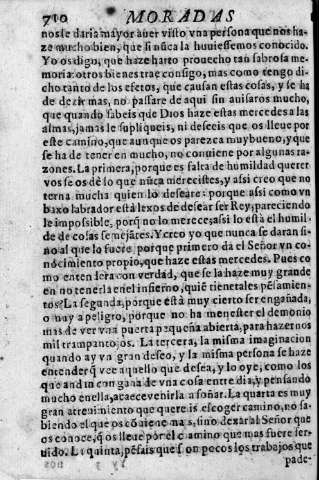 710 MORADAS
nosle daria mayor auer visto vna persona que nos ha-
ze mucho bien, que si nũca la huuiessemos conocido.
Yo os digo, que haze harto prouecho tan sabrosa me
moria: otros bienes trae consigo, mas como tengo di-
cho tanto de los efetos, que causan estas cosas, y se ha
de dezir mas, no passare de aqui sin auisaros mucho,
que quando sabeis que Dios haze estas mercedes a las
almas, jamas le supliqueis, ni deseeis que os lleue por
este camino, que aunque os parezca muy bueno, y que
se ha de tener en mucho, no conuiene por algunas ra-
zones. La primera, porque es falta de humildad querer
vos se os dè lo que nũca merecistes, y assi creo que no
terna mucha quien lo deseare: porque assi como vn
baxo labrador està lexos de desear ser Rey, pareciendo
le impossible, porq̃ no lo merece; assi lo està el humil-
de de cosas semejãtes. Y creo yo que nunca se daran si-
no al que lo fuere, porque primero da el Señor vn co-
nocimiento propio, que haze estas mercedes. Pues co
mo entendera con verdad, que se la haze muy grande
en no tenerla en el infierno, quiẽ tiene tales pẽsamien-
tos? La segunda, porque està muy cierto ser engañada,
o muy a peligro, porque no ha menester el demonio
mas de ver vna puerta pequeña abierta, para hazernos
mil trampantojos. La tercera, la misma imaginacion
quando ay vn gran deseo, y la misma persona se haze
entender q̃ vee aquello que desea, y lo oye, como los
que andan con gana de vna cosa entre dia, y pensando
mucho en ella, acaece venirla a soñar. La quarta es muy
gran atreuimiento que quereis escoger camino, no sa-
biendo el que os conuiene mas, sino dexar al Señor que
os conoce, q̃ os lleue por el camino que mas fuere ser-
uido. La quinta, pẽsais que son pocos los trabajos que
pade-